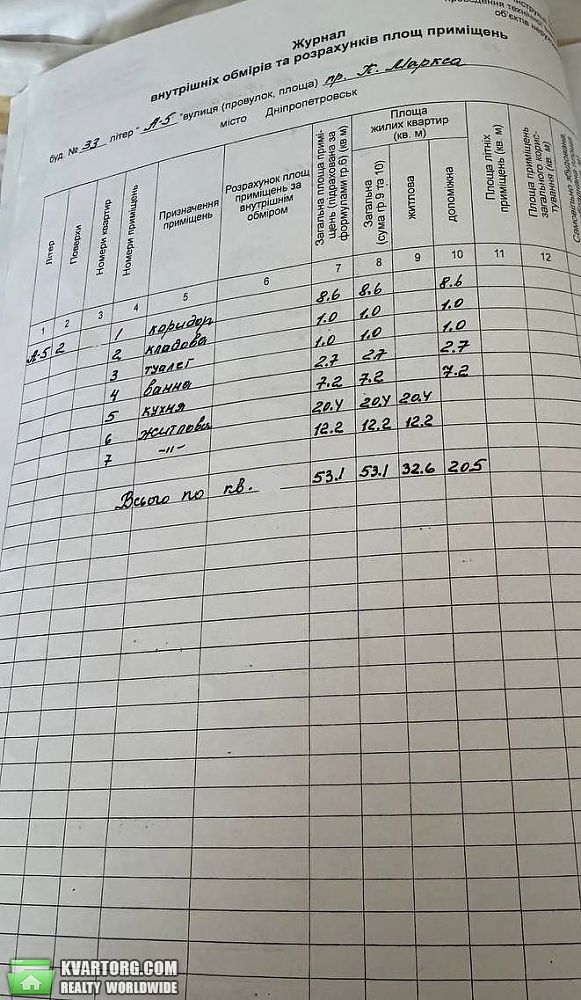 Журнал
внутрішніх обмірів та розрахунків площ приміщень
буд. № 33 літер " А-5 " вулиця (провулок, площа) пр. К. Маркса
місто Дніпропетровськ
Літер
Поверхи
Номери квартир
Номери приміщень
Призначення приміщень
Розрахунок площ приміщень за внутрішнім обміром
Загальна площа приміщень (підрахована за формулами гр 6) (кв м)
Площа жилих квартир (кв. м)
Загальна (сума гр 9 та 10)
житлова
допоміжна
Площа літніх приміщень (кв. м)
Площа приміщень загального користування (кв. м)
1 2 3 4 5 6 7 8 9 10 11 12
А-5 2 1 коридор 8.6 8.6 8.6
2 кладова 1.0 1.0 1.0
3 туалет 1.0 1.0 1.0
4 ванна 2.7 2.7 2.7
5 кухня 7.2 7.2 7.2
6 житлова 20.4 20.4 20.4
7 -"- 12.2 12.2 12.2
Всього по кв. 53.1 53.1 32.6 20.5
KVARTORG.COM
REALTY WORLDWIDE